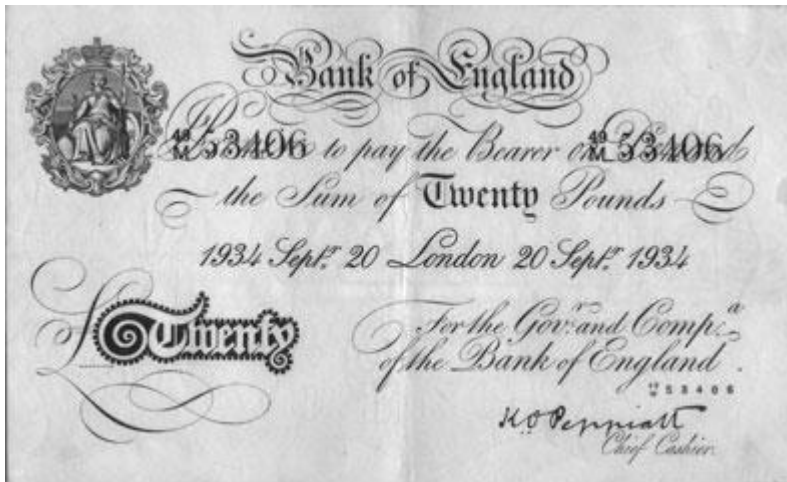 Bank of England
49/M 53406 I Promise to pay the Bearer on Demand 49/M 53406
the Sum of Twenty Pounds
1934 Septr. 20 London 20 Septr. 1934
£ Twenty
For the Govr. and Compa.
of the Bank of England.
49/M 53406
K O Peppiatt
Chief Cashier.